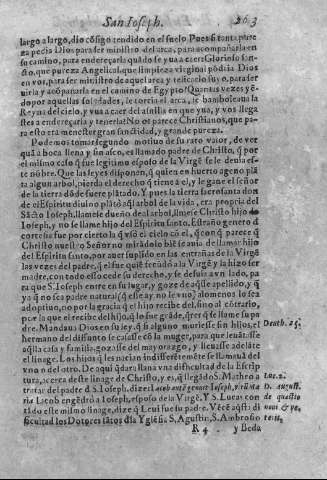 San Ioseph. 263
largo a largo, dio cõsigo tendido en el suelo. Pues si tanta pureza
pedia Dios para ser ministro del arca, para acompañarla en
su camino, para endereçarla quãdo se
sto, que pureza Angelical, que limpieza virginal pediria Dios
en vos, para ser ministro de aquel arca y relicario suyo, para seruirla
y acõpañarla en el camino de Egypto? Quantas vezes yẽdo
por aquellas soledades, se torcia el arca, se bamboleaua la
Reyna del cielo, y vua a caer del asnilla en que yua, y vos llegastes
a endereçarla y tenerla? No os parece Christianos, que para
esto era menester gran sanctidad, y grande pureza.
Podemos tomar segundo motiuo de su raro valor, de ver
quã a boca llena y sin asco, es llamado padre de Christo, q̃ por
el mismo caso q̃ fue legitimo esposo de la Virgẽ se le deuia este
nõbre. Que las leyes disponen, q̃ quien en huerto ageno plãta
algun arbol, pierda el derecho q̃ tiene a el, y le gane el señor
de la tierra dõde fuere plãtado. Y pues la tierra sacrosanta donde
el Espiritu diuino plãtò aq̃l arbol de la vida, era propria del
Sãcto Ioseph, llamese dueño deal arbol, llamese Christo hijo de
Ioseph, y no se llame hijo del Espiritu santo. Estraño genero d̃
cortesia fue por cierto la q̃ vsò el cielo cõ el, q̃ con q̃ parece q̃
Christo nuestro Señor no mirãdolo biẽ se auia de llamar hijo
del Espiritu santo, por auer suplido en las entrañas de la Virgẽ
las vezes del padre, q̃ el fue quiẽ fecundò a la Virgẽ y la hizo ser
madre, con todo esso cede su derecho, y se desuia a vn lado, para
que S. Ioseph entre en su lugar, y goze de aq̃sse apellido, y q̃
ya q̃ no sea padre natural (q̃ esse ay no le vuo) alomenos lo sea
adoptiuo, no por la gracia q̃ el hijo recibe del, sino al cõtrario,
por la que el recibe del hijo, q̃ lo fue grãde, q̃rer q̃ le llame su padre.
Mandaua Dios en su ley, q̃ si alguno muriesse sin hijos, el
hermano del difunto se casasse cõ la muger, para que leuãtasse
aq̃lla casa y familia, gozasse del mayorazgo, y lleuasse adelãte
el linage. Los hijos q̃ les naciã indifferẽtemẽte se llamauã del
vno n del otro. De aqui q̃dara llana vna dificultad de la Escriptura,
acerca deste linage de Christo, y es, q̃ llegãdo S. Matheo a
tratar del padre d̃ S. Ioseph, dize: Iacob autẽ genuit Ioseph, virũ Maria
Iacob engẽdrò a Ioseph, esposo de la Virgẽ. Y S. Lucas contãdo
este mismo linage, dize q̃ Leui fue su padre. Vẽcẽ aq̃sta dificultad
los Dotores sãtos d̃la Yglesia. S. Agustin, S. Ambrosio
R 4 y Beda
Deuth. 25.
Luc. 3.
D. august.
de questio
noui & ve.
test.